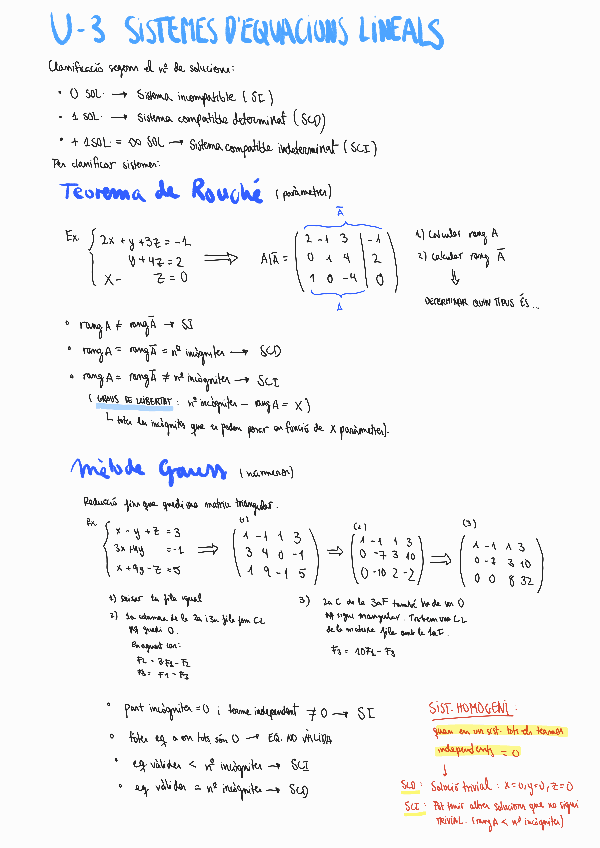 U-3 SISTEMES D'EQUACIONS LINEALS
Classificació segons el nº de solucions:
• 0 SOL. → Sistema incompatible (SI)
• 1 SOL. → Sistema compatible determinat (SCD)
• + 1 SOL = ∞ SOL → Sistema compatible indeterminat (SCI)
Per classificar sistemes:
Teorema de Rouché (paràmetres)
Ā
Ex. 2x + y + 3z = -1
y + 4z = 2
x - z = 0
⟹ A|Ā =
2 -1 3 | -1
0 1 4 | 2
1 0 -4 | 0
A
1) Calcular rang A
2) Calcular rang Ā
⇓
DETERMINAR QUIN TIPUS ÉS...
• rang A ≠ rang Ā → SI
• rang A = rang Ā = nº incògnites → SCD
• rang A = rang Ā ≠ nº incògnites → SCI
(GRAUS DE LLIBERTAT: nº incògnites - rang A = X)
totes les incògnites que es poden posar en funció de X paràmetres).
Mètode Gauss (números)
Reducció fins que quedi una matriu triangular.
Ex. x - y + z = 3
3x + 4y = -1
x + 9y - z = 5
⟹ (1)
1 -1 1 3
3 4 0 -1
1 9 -1 5
⟹ (2)
1 -1 1 3
0 -7 3 10
0 -10 2 -2
⟹ (3)
1 -1 1 3
0 -7 3 10
0 0 8 32
1) deixar 1a fila igual
2) 1a columna de la 2a i 3a fila fem CL
xq quedi 0.
En aquest cas:
F2 = 3F1 - F2
F3 = F1 - F3
3) 2a C de la 3a F també ha de ser 0
xq sigui triangular. Trobem una CL
de la mateixa fila amb la 1a F.
F3 = 10F2 - F3
• part incògnites = 0 i terme independent ≠ 0 → SI
• totes eq. a on tots són 0 → EQ. NO VÀLIDA
• eq vàlides < nº incògnites → SCI
• eq vàlides = nº incògnites → SCD
SIST. HOMOGENI:
quan en un sist. tots els termes
independents = 0
↓
SCD: Solució trivial: x=0, y=0, z=0
SCI: Pot tenir altres solucions que no sigui
TRIVIAL. (rang A < nº incògnites)